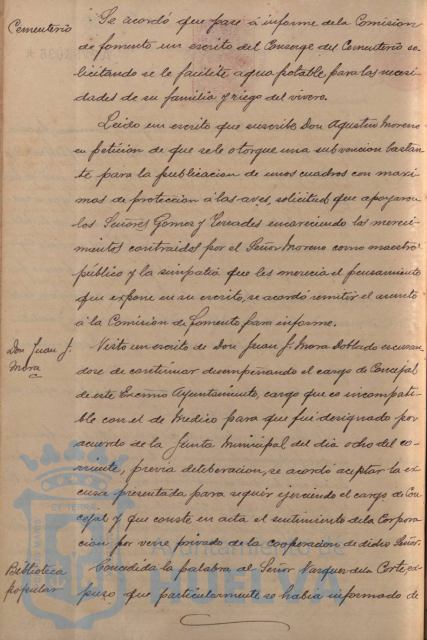 Cementerio
Se acordó que pase á informe de la Comision
de fomento un escrito del Conserge del Cementerio so-
licitando se le facilite, agua potable, para las necesi-
dades de su familia y riego del vivero.
Leido un escrito que suscribe Don Agustin Moreno
en peticion de que se le otorgue una subvencion bastan-
te para la publicacion de unos cuadros con maxi-
mas de proteccion á las aves, solicitud que apoyaron
los Señores Gomez y Terrades encareciendo los mereci-
mientos contraidos por el Señor Moreno como maestro
público y la simpatia que les merecia el pensamiento
que expone en su escrito, se acordó remitir el asunto
á la Comision de fomento para informe.
Don Juan J.
Mora
Visto un escrito de Don Juan J. Mora Doblado escusan-
dose de continuar desempeñando el cargo de Concejal
de este Excmo Ayuntamiento, cargo que es incompati-
ble con el de Medico para que fué designado por
acuerdo de la Junta Municipal del dia ocho del co-
rriente, previa deliberacion, se acordó aceptar la es-
cusa presentada para seguir ejerciendo el cargo de Con-
cejal y que conste en acta el sentimiento de la Corpora-
cion por verse privado de la cooperacion de dicho Señor.
Biblioteca
popular
Concedida la palabra al Señor Vazquez de la Corte, ex-
puso que particularmente se habia informado de
Ayuntamiento de
HUELVA